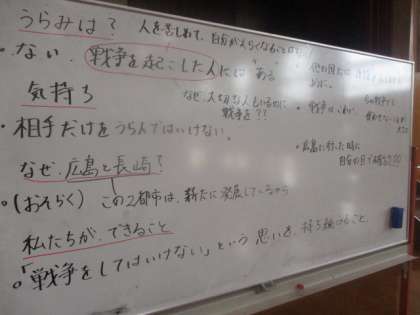 うらみは？ 人を苦しめて、自分がえらくなること
・ない。戦争を起こした人には ある
なぜ、大切な人もいるのに
戦争を??
・戦争は
気持ち
・相手だけをうらんではいけない。
・広島に行った時に
自分の目で
なぜ、広島と長崎？
・(おそらく) この2都市は、新たに発展しているから
私たちが、できること
。「戦争をしてはいけない」という 思いを、持ち続けること。